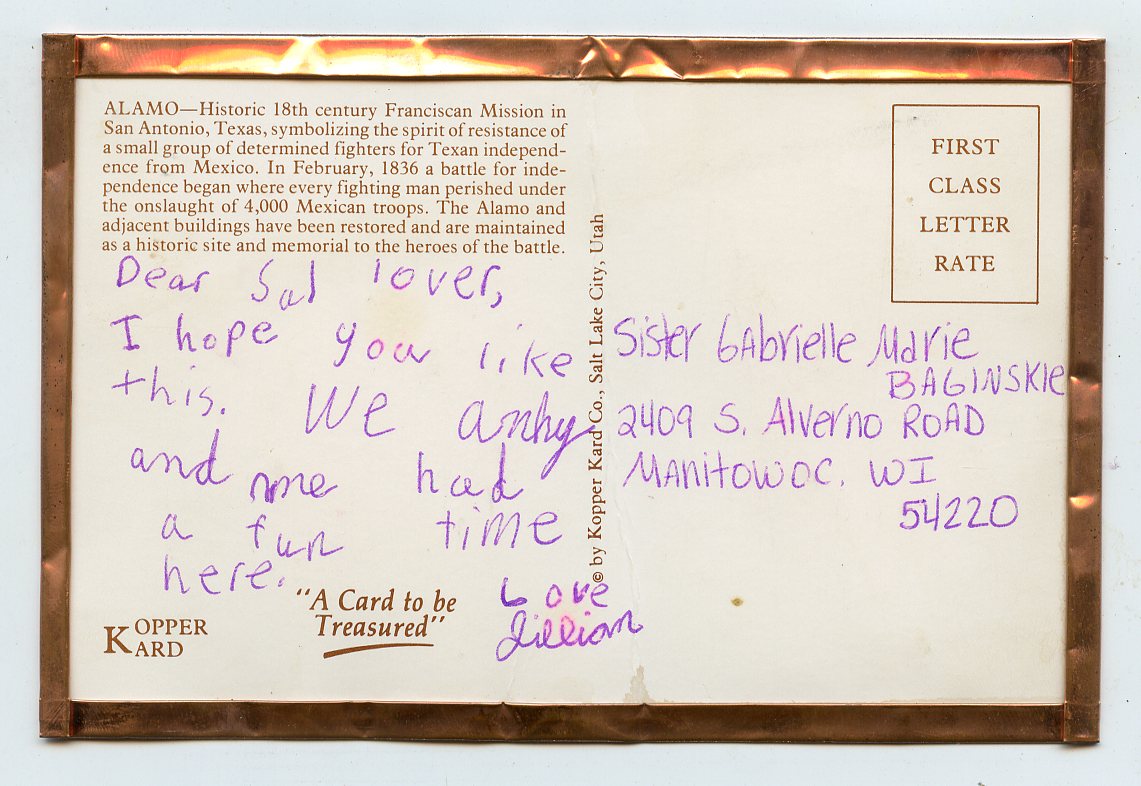 ALAMO—Historic 18th century Franciscan Mission in
San Antonio, Texas, symbolizing the spirit of resistance of
a small group of determined fighters for Texan independ-
ence from Mexico. In February, 1836 a battle for inde-
pendence began where every fighting man perished under
the onslaught of 4,000 Mexican troops. The Alamo and
adjacent buildings have been restored and are maintained
as a historic site and memorial to the heroes of the battle.
Dear Sal lover,
I hope you like
this. We
and me had
a fun time
here.
Love
Jillian
"A Card to be
Treasured"
KOPPER
KARD
© by Kopper Kard Co., Salt Lake City, Utah
FIRST
CLASS
LETTER
RATE
Sister GAbrielle Marie
BAGINSKIE
2409 S. Alverno ROAD
MANitowoc. WI
54220